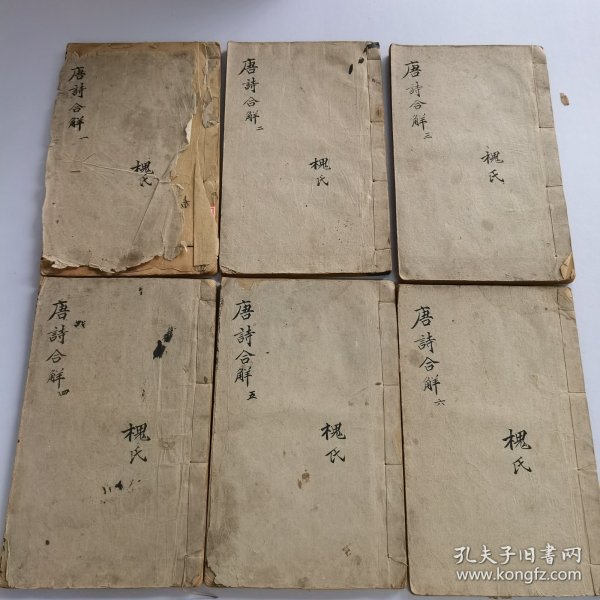 唐詩合觧一
槐氏
唐詩合觧二
槐氏
唐詩合觧三
槐氏
唐詩合觧四
槐氏
唐詩合觧五
槐氏
唐詩合觧六
槐氏
孔夫子旧书网
www.kongfz.com